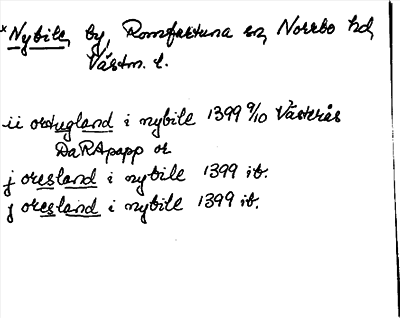 *Nybile, by, Romfartuna sn, Norrbo hd,
Västm. l.
ii ortugland i nybile 1399 9/10 Västerås
DaRApapp or
j oresland i nybile 1399 ib.
j oresland i nybile 1399 ib.